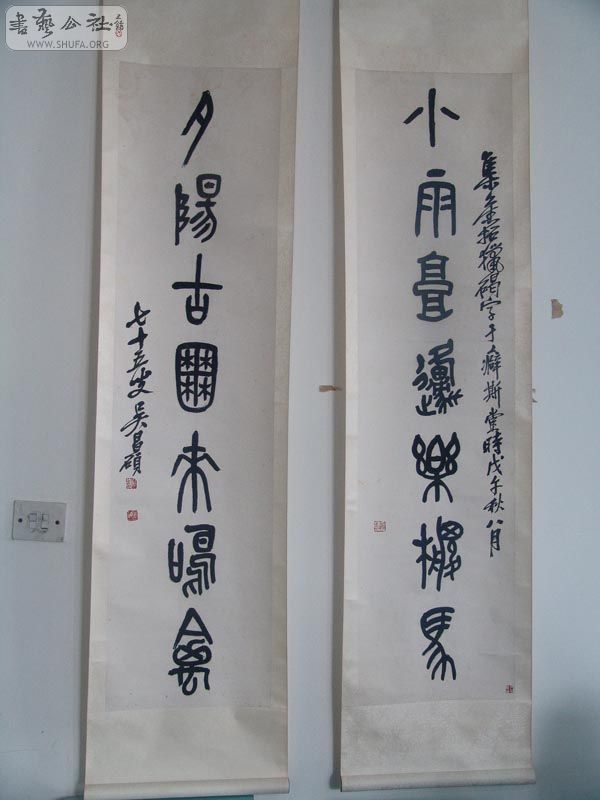 書藝公社
WWW.SHUFA.ORG
集拓獵碣字于癖斯堂時戊午秋八月
小雨邍樂馬
夕陽古囿來鳴禽
七十五叟吴昌碩